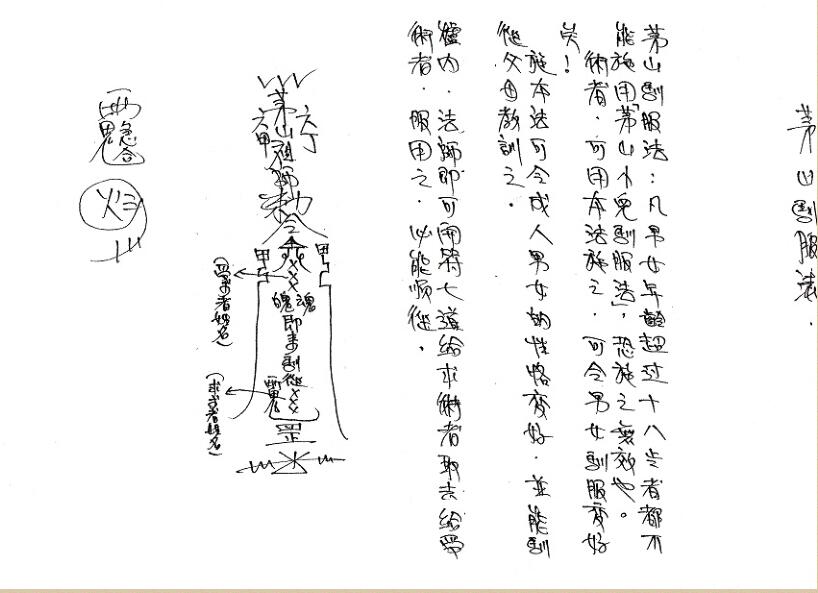 茅山馴服法.
茅山馴服法：凡男女年齡超过十八歲者都不
能施用「茅山小兒馴服法」，恐施之無效也。
術者．可用本法施之．可令男女馴服变好
矣！
施本法可令成人男女的性格变好．並能馴
從父母教訓之．
爐内．法師即可用符七道給求術者取去給受
術者．服用之．必能順從．
六丁
六甲
茅山祖師勅令
甲
甲
××魂魄即来馴從××
罡
(受術者姓名)
(求術者姓名)